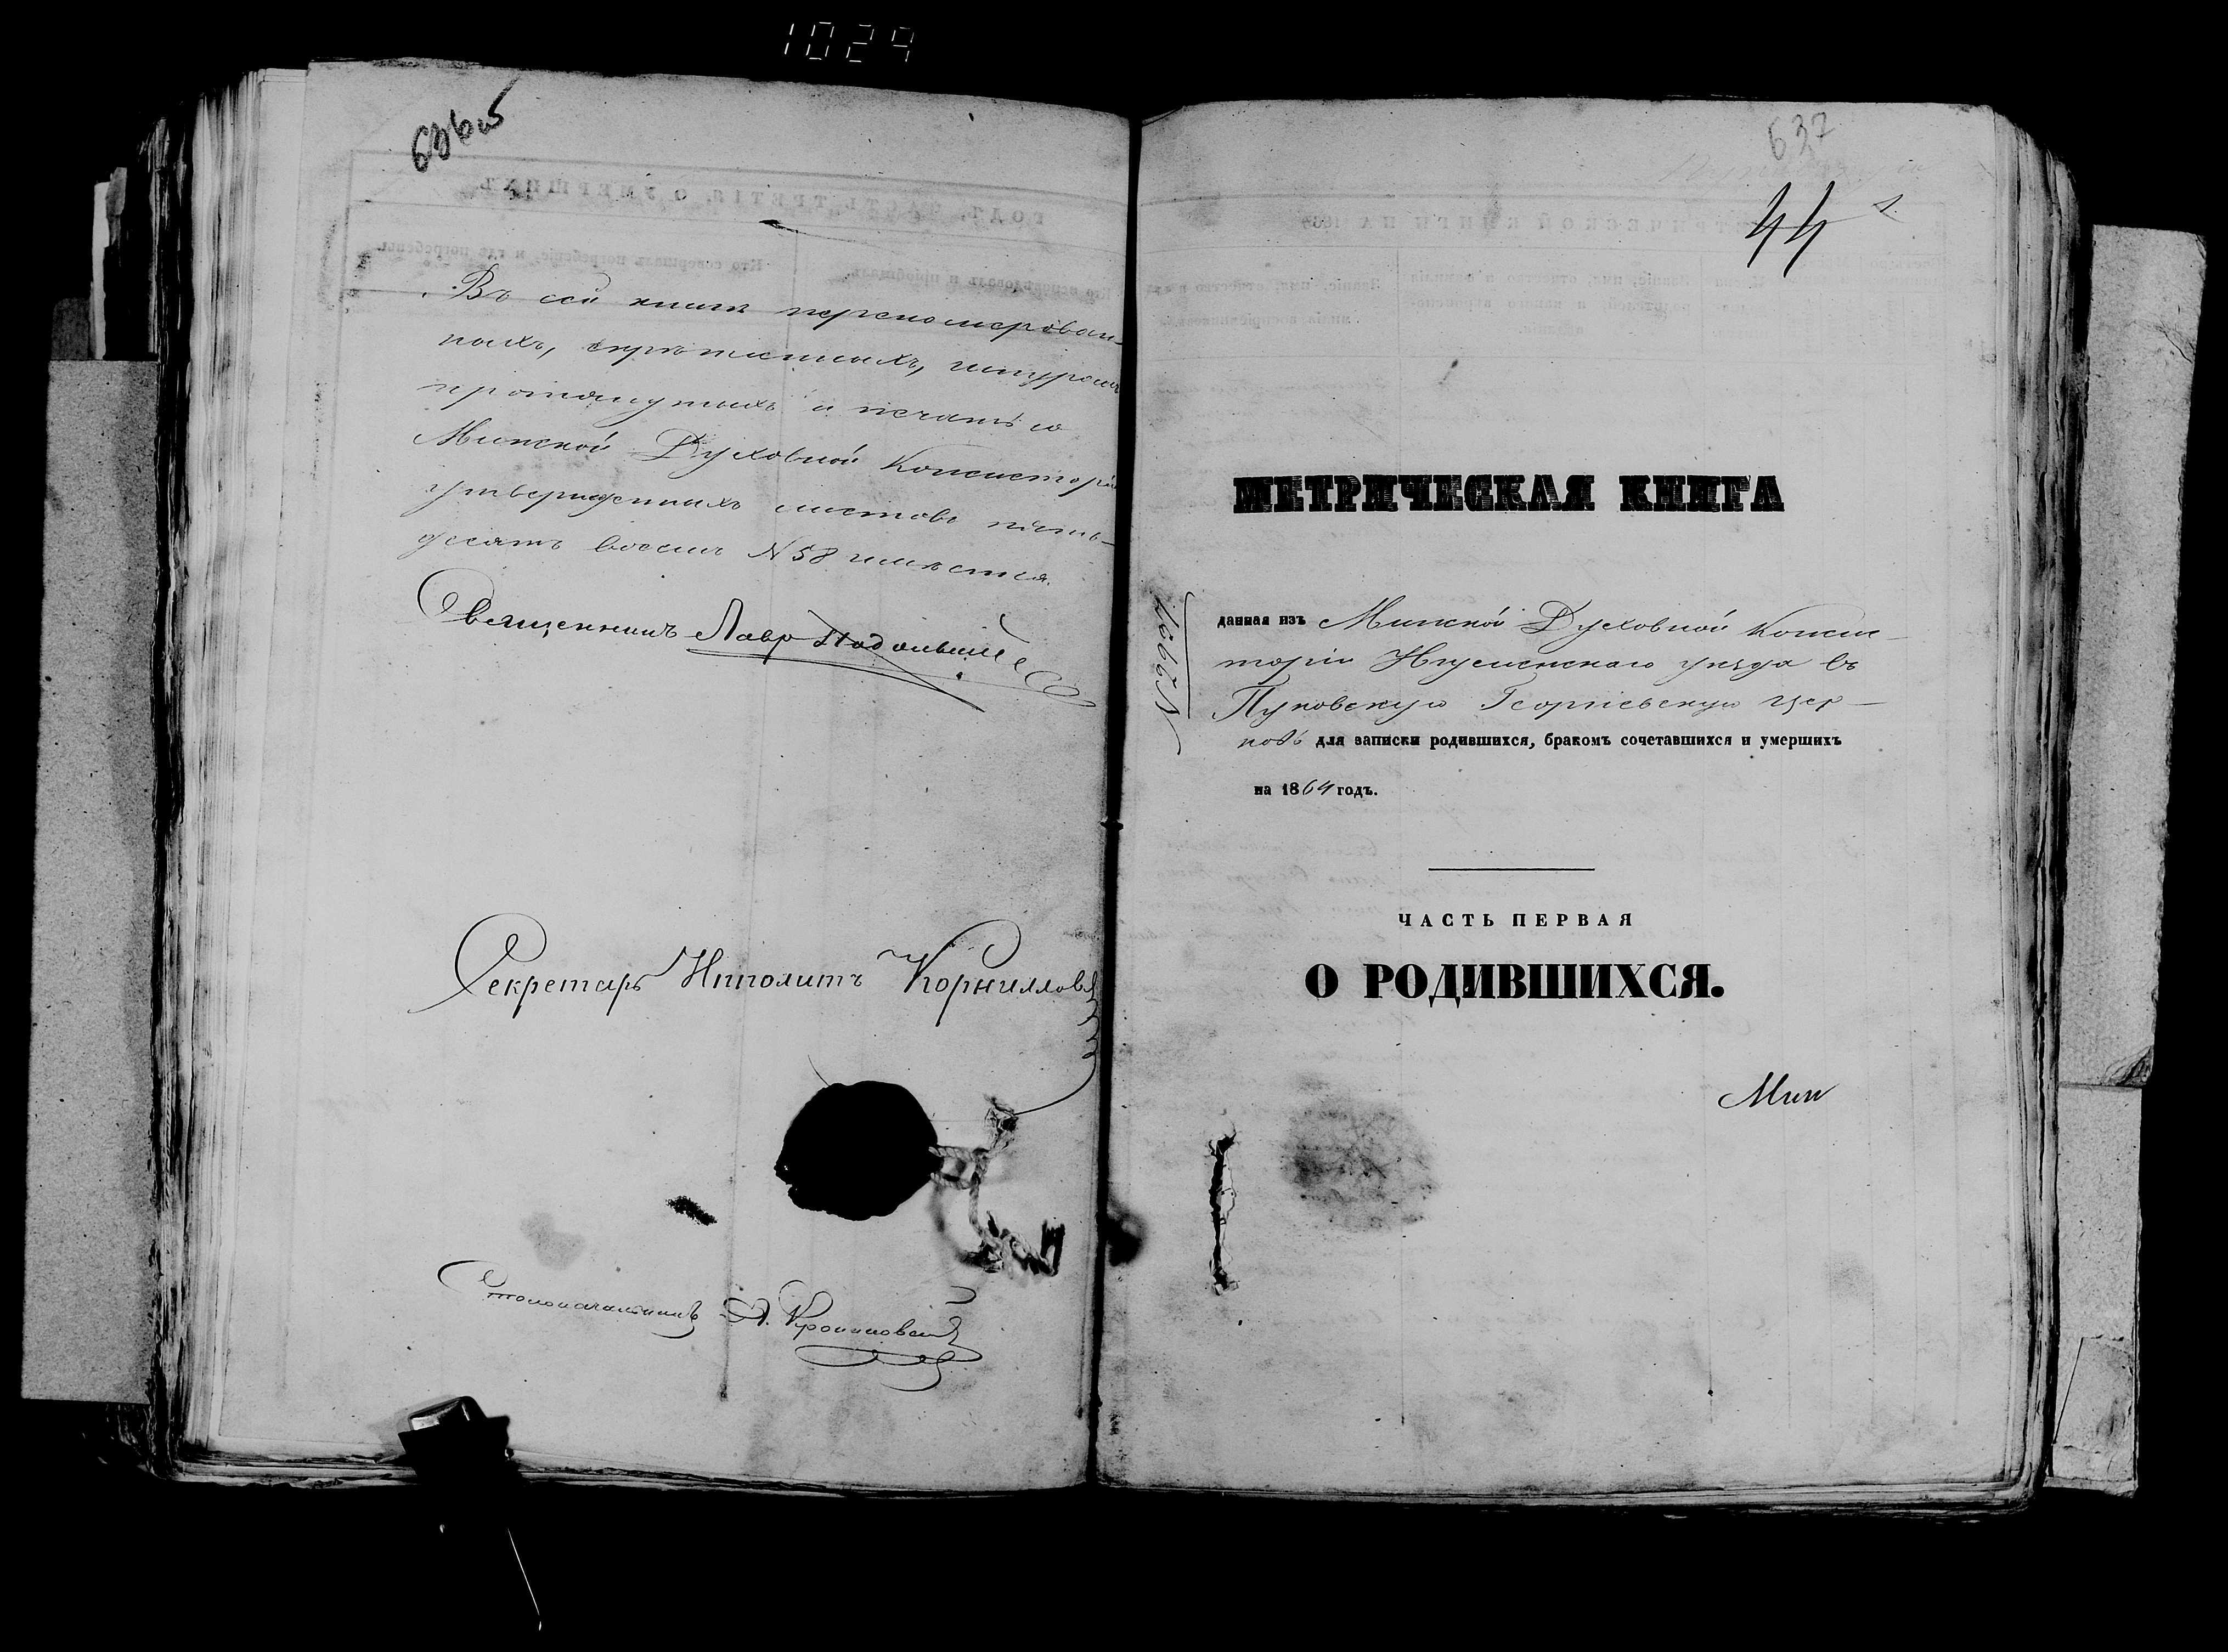 1029
636 об
Въ сей книгѣ переномерован-
ныхъ, скрѣпленныхъ, шнуромъ
протянутыхъ и печатью
Минской Духовной Консисторіи
утвержденныхъ листовъ пять-
десятъ восемь N 58 имѣется.
Священникъ Лавръ
Секретарь Ипполитъ Корниллов
Столоначальникъ А.
637
44 1.
МЕТРИЧЕСКАЯ КНИГА
данная изъ Минской Духовной Конси-
сторіи Игуменскаго уѣзда въ
Пуковскую Георгіевскую цер-
ковь для записки родившихся, бракомъ сочетавшихся и умершихъ
на 1864 годъ.
ЧАСТЬ ПЕРВАЯ
О РОДИВШИХСЯ.
Мин